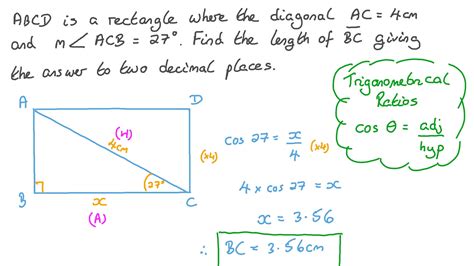 ABCD is a rectangle where the diagonal AC = 4cm
and m∠ACB = 27°. Find the length of BC giving
the answer to two decimal places.
Trigonometrical
Ratios
cos θ = adj/hyp
A
D
(H)
4cm
27°
B
x
C
(A)
(x4) cos 27 = x/4 (x4)
4 × cos 27 = x
x = 3.56
∴ BC = 3.56cm